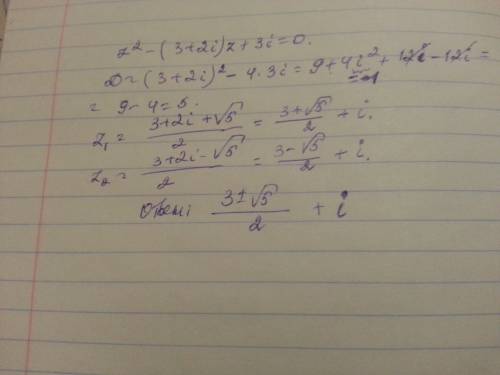 z² - (3+2i)z + 3i = 0.
D = (3+2i)² - 4·3i = 9 + 4i² + 12i - 12i =
= 9 - 4 = 5.
z₁ = (3+2i+√5)/2 = (3+√5)/2 + i.
z₂ = (3+2i-√5)/2 = (3-√5)/2 + i.
Ответ: (3±√5)/2 + i